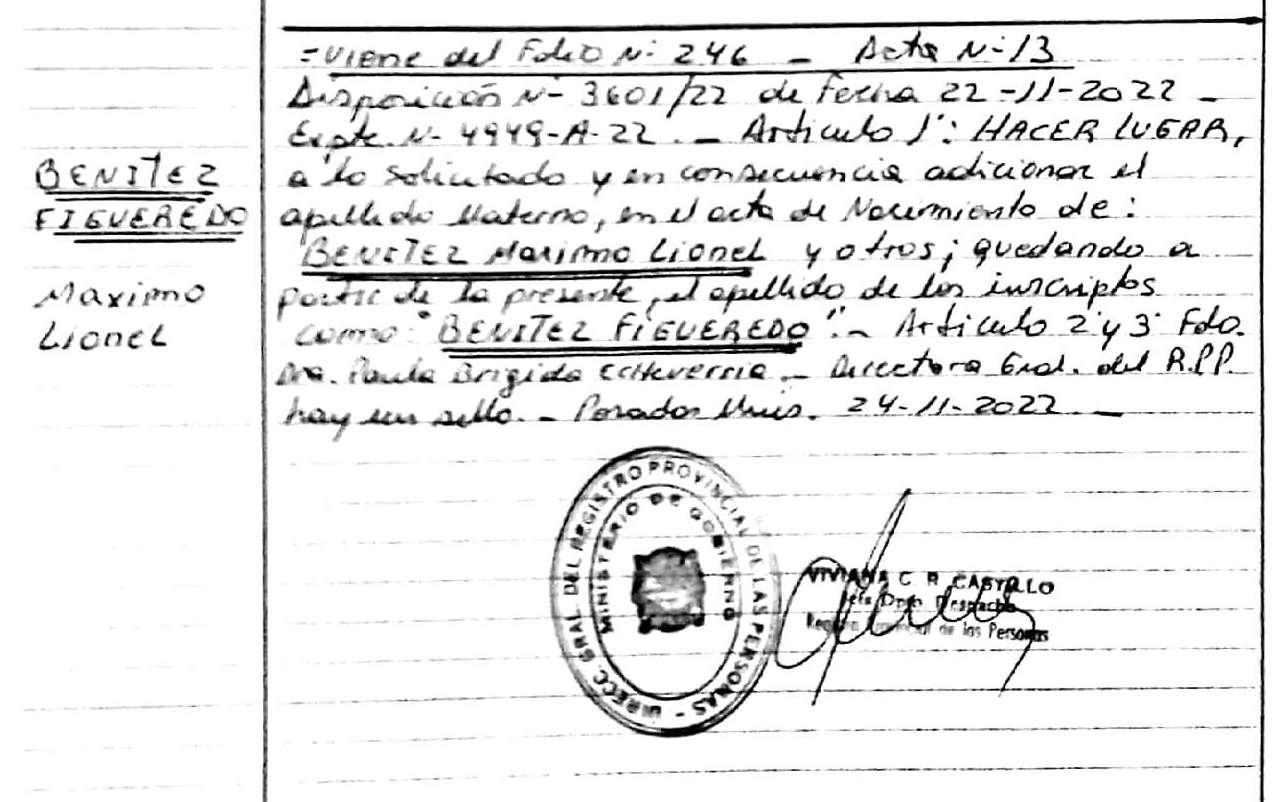 BENITEZ
FIGUEREDO
Maximo
Lionel
=Viene del Folio N: 246 _ Acta N: 13
Disposición N- 3601/22 de fecha 22-11-2022 _
Expte. N- 4949-A-22._ Articulo 1°: HACER LUGAR,
a lo solicitado y en consecuencia adicionar el
apellido Materno, en el acta de Nacimiento de:
BENITEZ Maximo Lionel y otros; quedando a
partir de la presente, el apellido de los inscriptos
como: "BENITEZ FIGUEREDO"._ Articulo 2° y 3° Fdo.
Dra. Paula Brigida Echeverria._ Directora Gral. del R.P.P.
hay un sello._ Posadas Mnes. 24-11-2022._
DIRECC. GRAL. DEL REGISTRO PROVINCIAL DE LAS PERSONAS -
MINISTERIO DE GOBIERNO
VIVIANA C. R. CASTILLO
Jefa Dpto. Despacho
Registro Provincial de las Personas